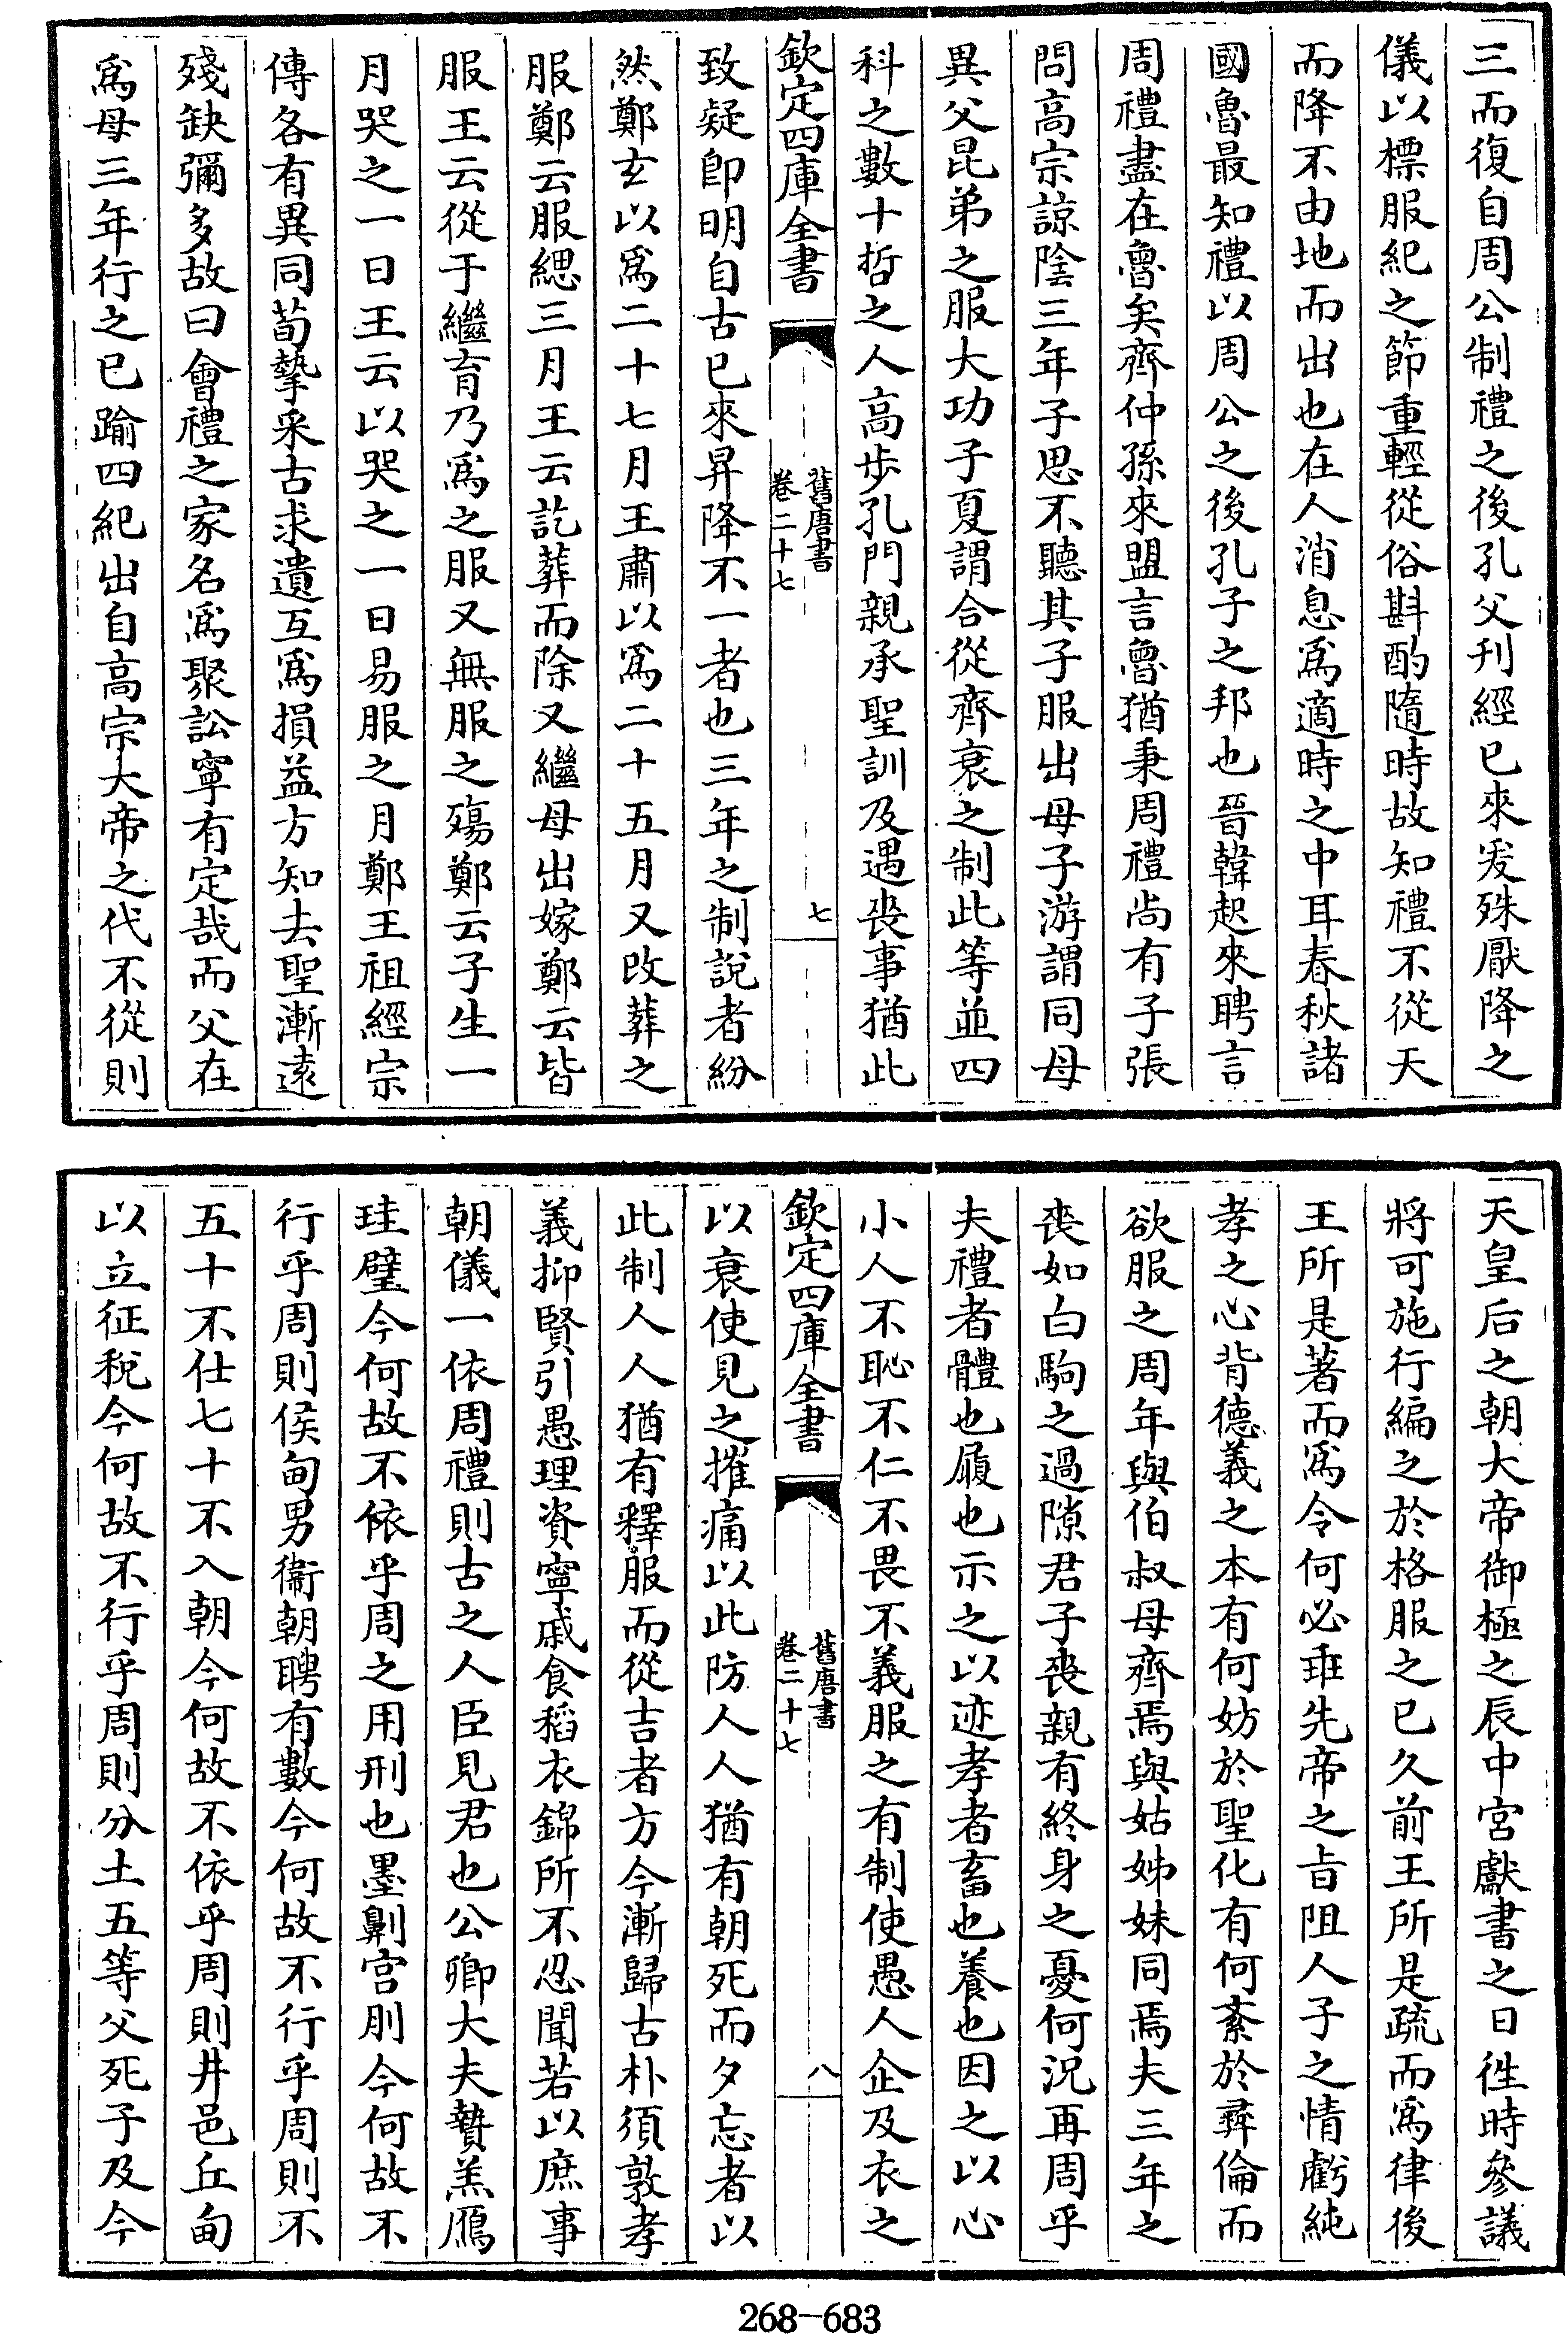 三而復自周公制禮之後孔父刋經已來爰殊厭降之
儀以標服紀之節重輕從俗斟酌隨時故知禮不從天
而降不由地而出也在人消息爲適時之中耳春秋諸
國魯最知禮以周公之後孔子之邦也晉韓起來聘言
周禮盡在魯矣齊仲孫來盟言魯猶秉周禮尚有子張
問高宗諒陰三年子思不聽其子服出母子游謂同母
異父昆弟之服大功子夏謂合從齊衰之制此等並四
科之數十哲之人高步孔門親承聖訓及遇喪事猶此
欽定四庫全書
舊唐書
卷二十七
七
致疑卽明自古已來昇降不一者也三年之制說者紛
然鄭玄以爲二十七月王肅以爲二十五月又改葬之
服鄭云服緦三月王云訖葬而除又繼母出嫁鄭云皆
服王云從于繼育乃爲之服又無服之殤鄭云子生一
月哭之一日王云以哭之一日易服之月鄭王祖經宗
傳各有異同荀摯采古求遺互爲損益方知去聖漸遠
殘缺彌多故曰會禮之家名爲聚訟寧有定哉而父在
爲母三年行之已踰四紀出自高宗大帝之代不從則
天皇后之朝大帝御極之辰中宮獻書之日徃時參議
將可施行編之於格服之已久前王所是疏而爲律後
王所是著而爲令何必乖先帝之旨阻人子之情虧純
孝之心背德義之本有何妨於聖化有何紊於彝倫而
欲服之周年與伯叔母齊焉與姑姊妹同焉夫三年之
喪如白駒之過隙君子喪親有終身之憂何況再周乎
夫禮者體也履也示之以迹孝者畜也養也因之以心
小人不恥不仁不畏不義服之有制使愚人企及衣之
欽定四庫全書
舊唐書
卷二十七
八
以衰使見之摧痛以此防人人猶有朝死而夕忘者以
此制人人猶有釋服而從吉者方今漸歸古朴須敦孝
義抑賢引愚理資寧戚食稻衣錦所不忍聞若以庶事
朝儀一依周禮則古之人臣見君也公卿大夫贄羔鴈
珪璧今何故不依乎周之用刑也墨劓宫刖今何故不
行乎周則侯甸男衞朝聘有數今何故不行乎周則不
五十不仕七十不入朝今何故不依乎周則井邑丘甸
以立征稅今何故不行乎周則分土五等父死子及今
268-683